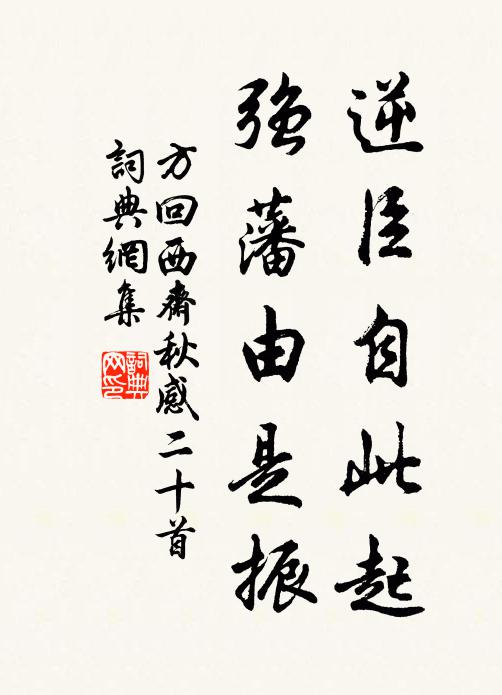 逆臣自此起
強藩由是振
方回西齋秋感二十首
詞典網集
詞典網印